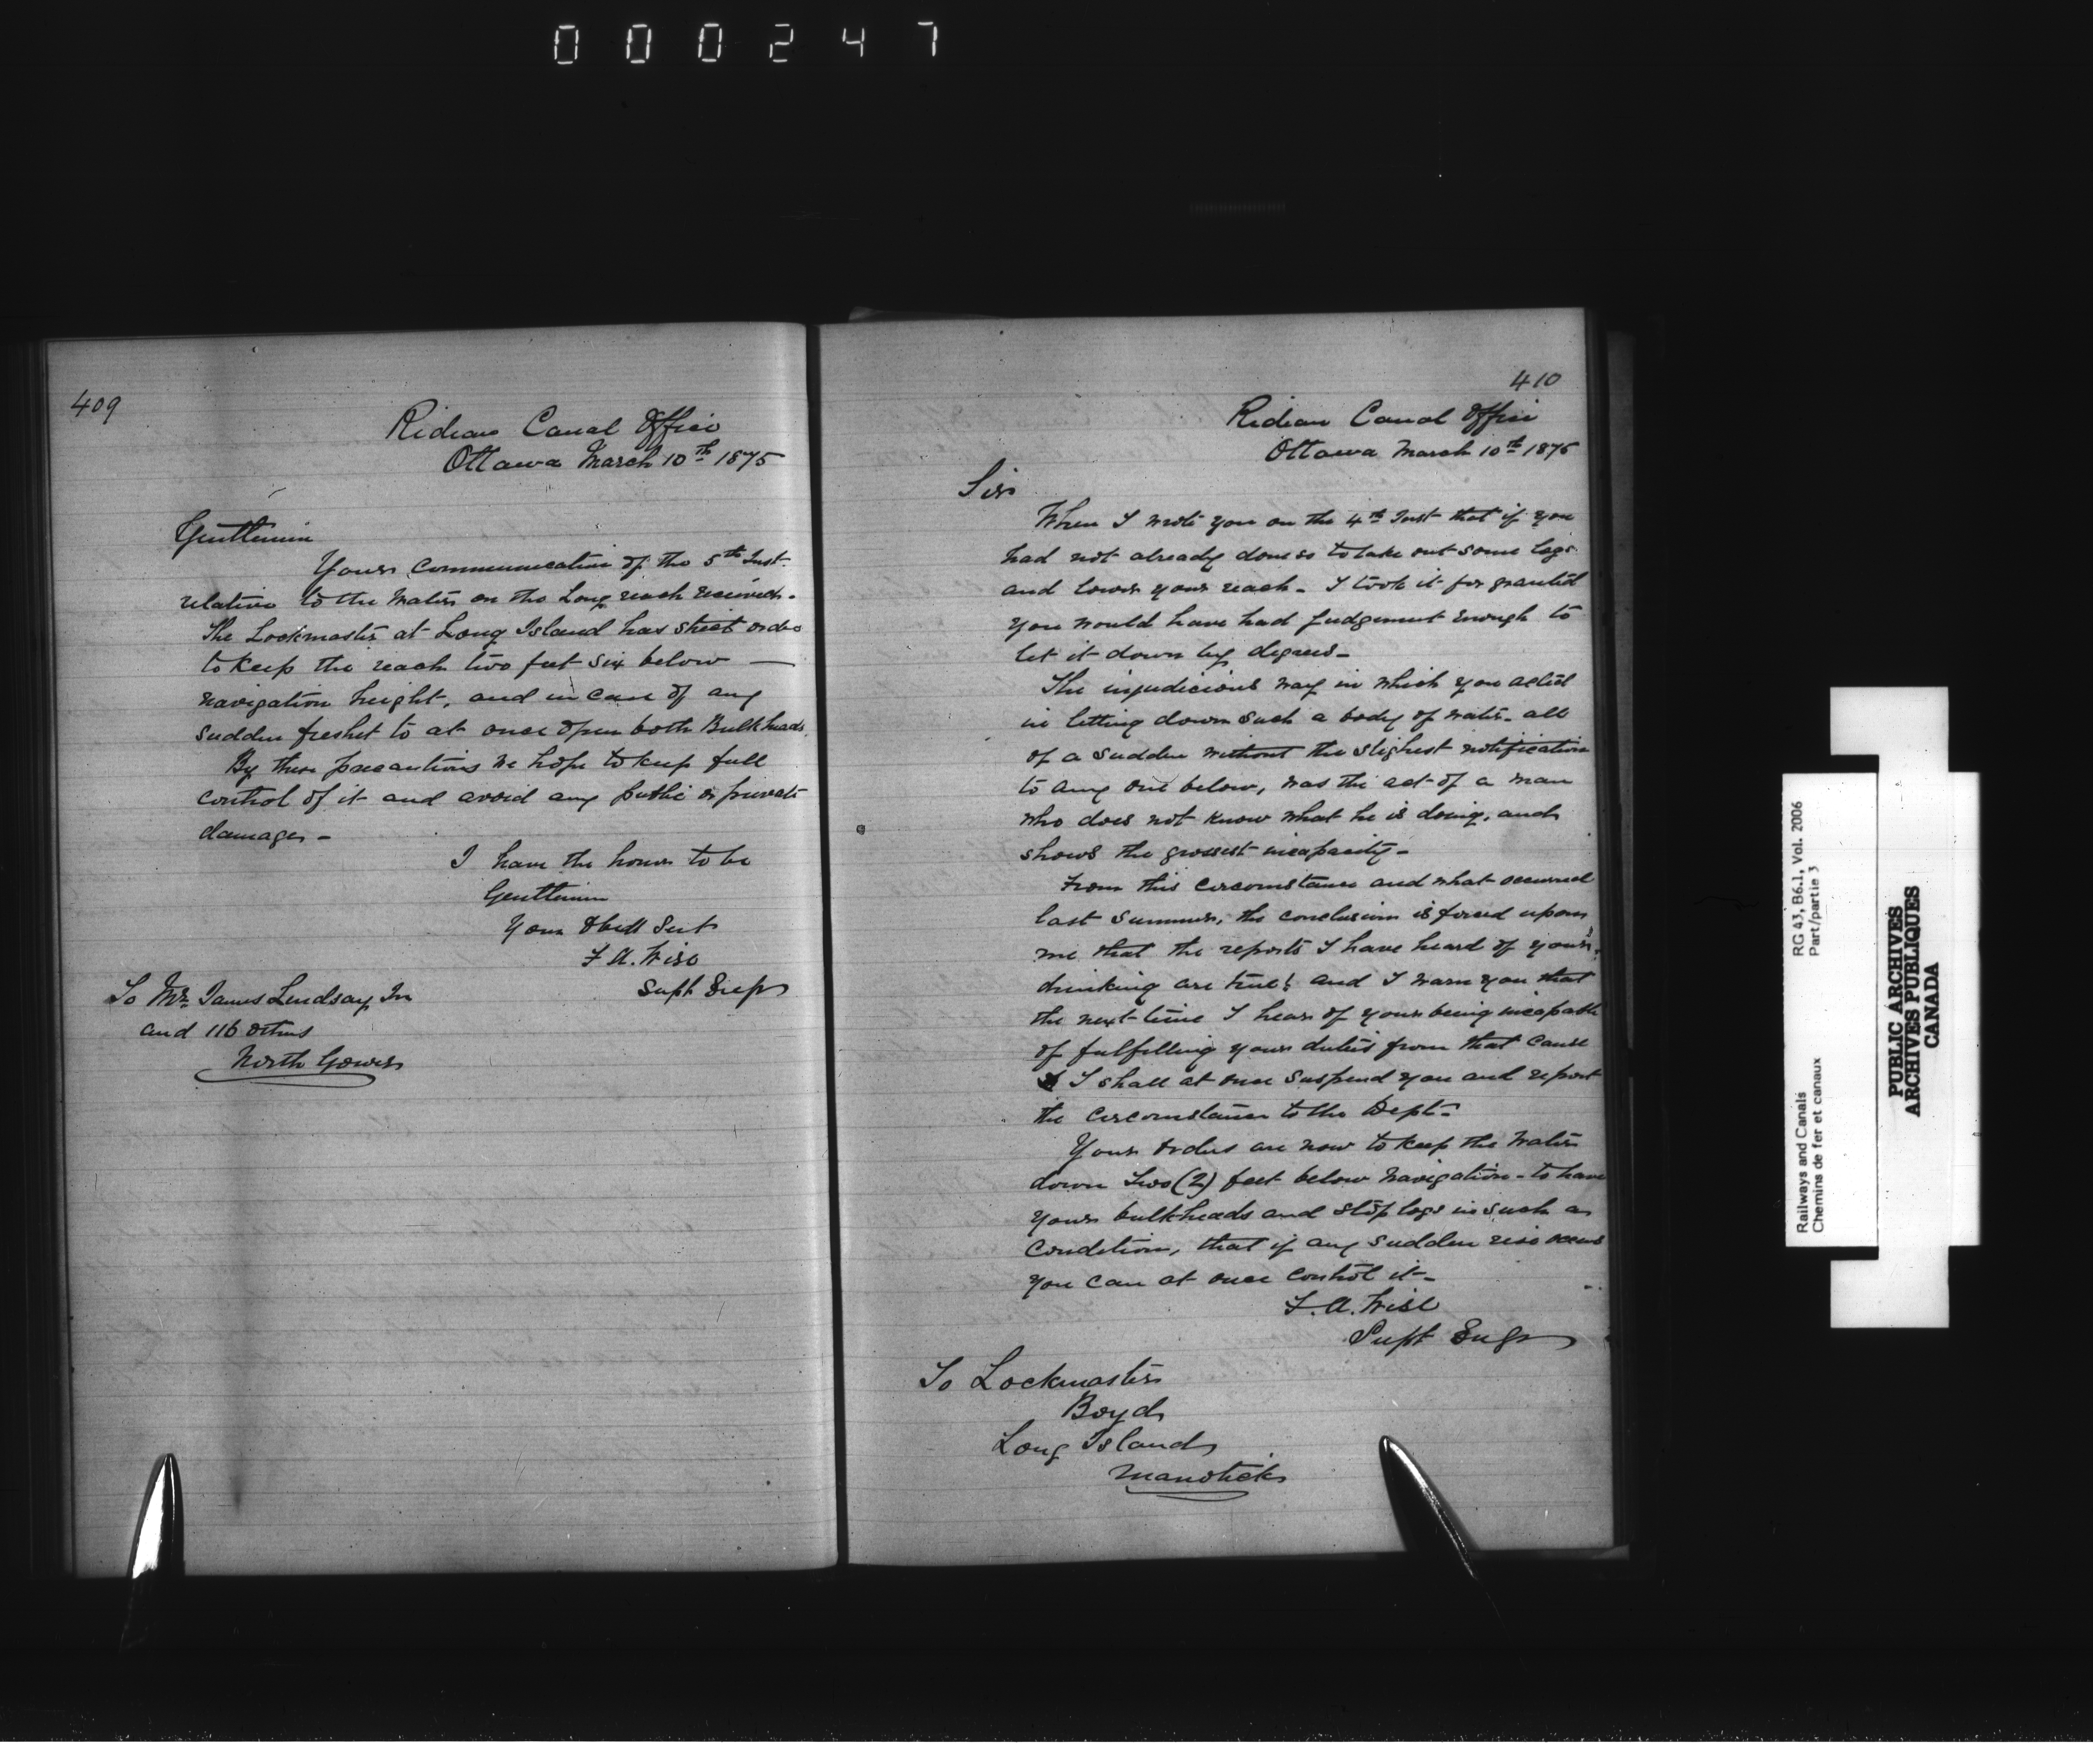 000247
409
Rideau Canal Office
Ottawa March 10th 1875
Gentlemen
Your Communication of the 5th Inst.
relative to the Water on the Long reach received.
The Lockmaster at Long Island has strict orders
to keep the reach two feet six below —
navigation height, and in case of any
sudden freshet to at once open both Bulkheads.
By these precautions we hope to keep full
control of it and avoid any public or private
damages -
I have the honor to be
Gentlemen
Your Obedt Servt
F. A. Wise
Supt Engr
To Mr. James Lindsay Jr
and 116 others
North Gower
410
Rideau Canal Office
Ottawa March 10th 1875
Sir
When I wrote you on the 4th Inst that if you
had not already done so to take out some logs
and lower your reach - I took it for granted
you would have had judgement enough to
let it down by degrees -
The injudicious way in which you acted
in letting down such a body of water - all
of a sudden without the slighest notification
to any one below, was the act of a man
who does not know what he is doing, and
shows the grossest incapacity -
From this circumstance and what occurred
last summer, the conclusion is forced upon
me that the reports I have heard of your
drinking are true; and I warn you that
the next time I hear of your being incapable
of fulfilling your duties from that cause
I shall at once suspend you and report
the circumstance to the Dept -
Your orders are now to keep the water
down Two (2) feet below navigation - to have
your bulkheads and stop logs in such a
condition, that if any sudden rise occurs
you can at once control it -
F. A. Wise
Supt Engr
To Lockmaster
Boyd
Long Island
Manotick
Railways and Canals
Chemins de fer et canaux
RG 43, B6.1, Vol. 2006
Part/partie 3
PUBLIC ARCHIVES
ARCHIVES PUBLIQUES
CANADA